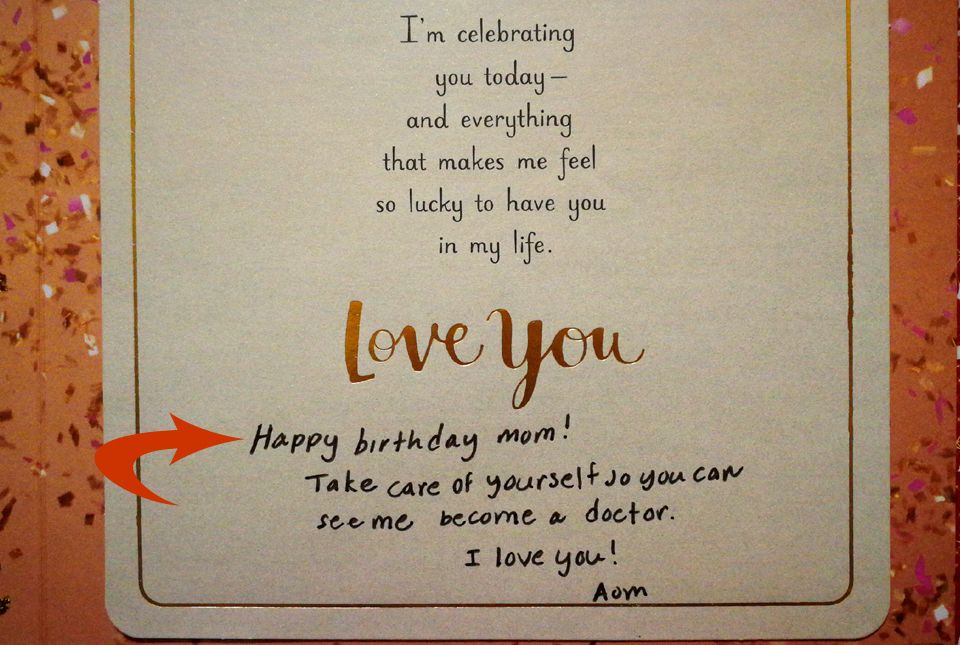 I'm celebrating
you today—
and everything
that makes me feel
so lucky to have you
in my life.
Love You
Happy birthday mom!
Take care of yourself so you can
see me become a doctor.
I love you!
Aom